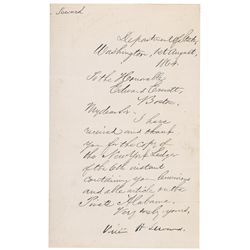 - Seward
Department of State,
Washington, 1st August,
1864.
To the Honorable
Edward Everett,
Boston.
My dear Sir:
I have
received and thank
you for the copy of
the New York Ledger
of the 6th instant
containing your
and able article on the
Pirate Alabama.
Very truly yours,
William H Seward.